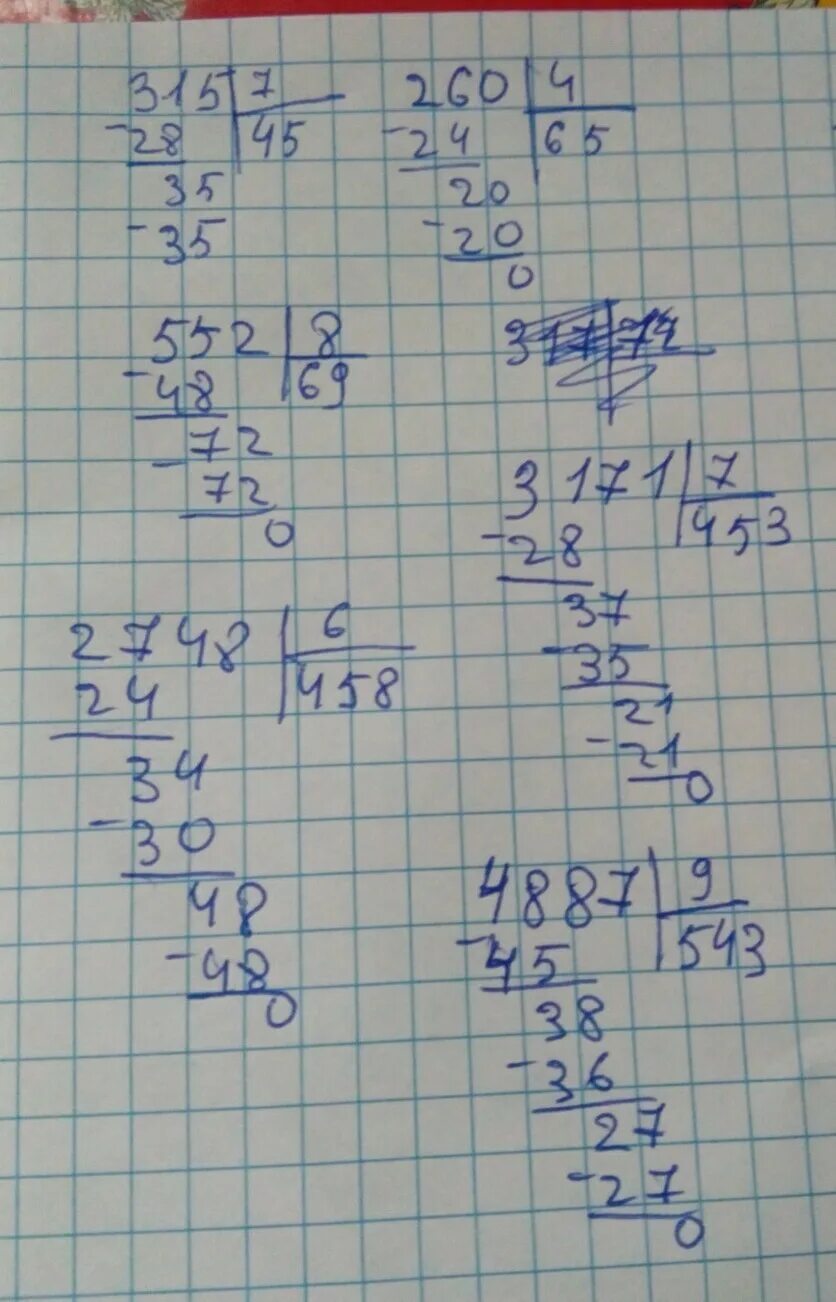 315 7
-28 45
35
-35
260 4
-24 65
20
-20
0
552 8
-48 69
-72
72
0
3171 7
-28 453
37
-35
21
-21
0
2748 6
24 458
34
-30
48
-48
0
4887 9
-45 543
38
-36
27
-27
0